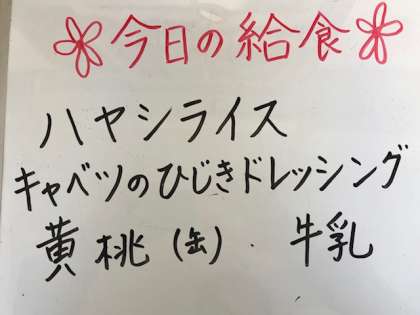 今日の給食
ハヤシライス
キャベツのひじきドレッシング
黄桃(缶)・牛乳